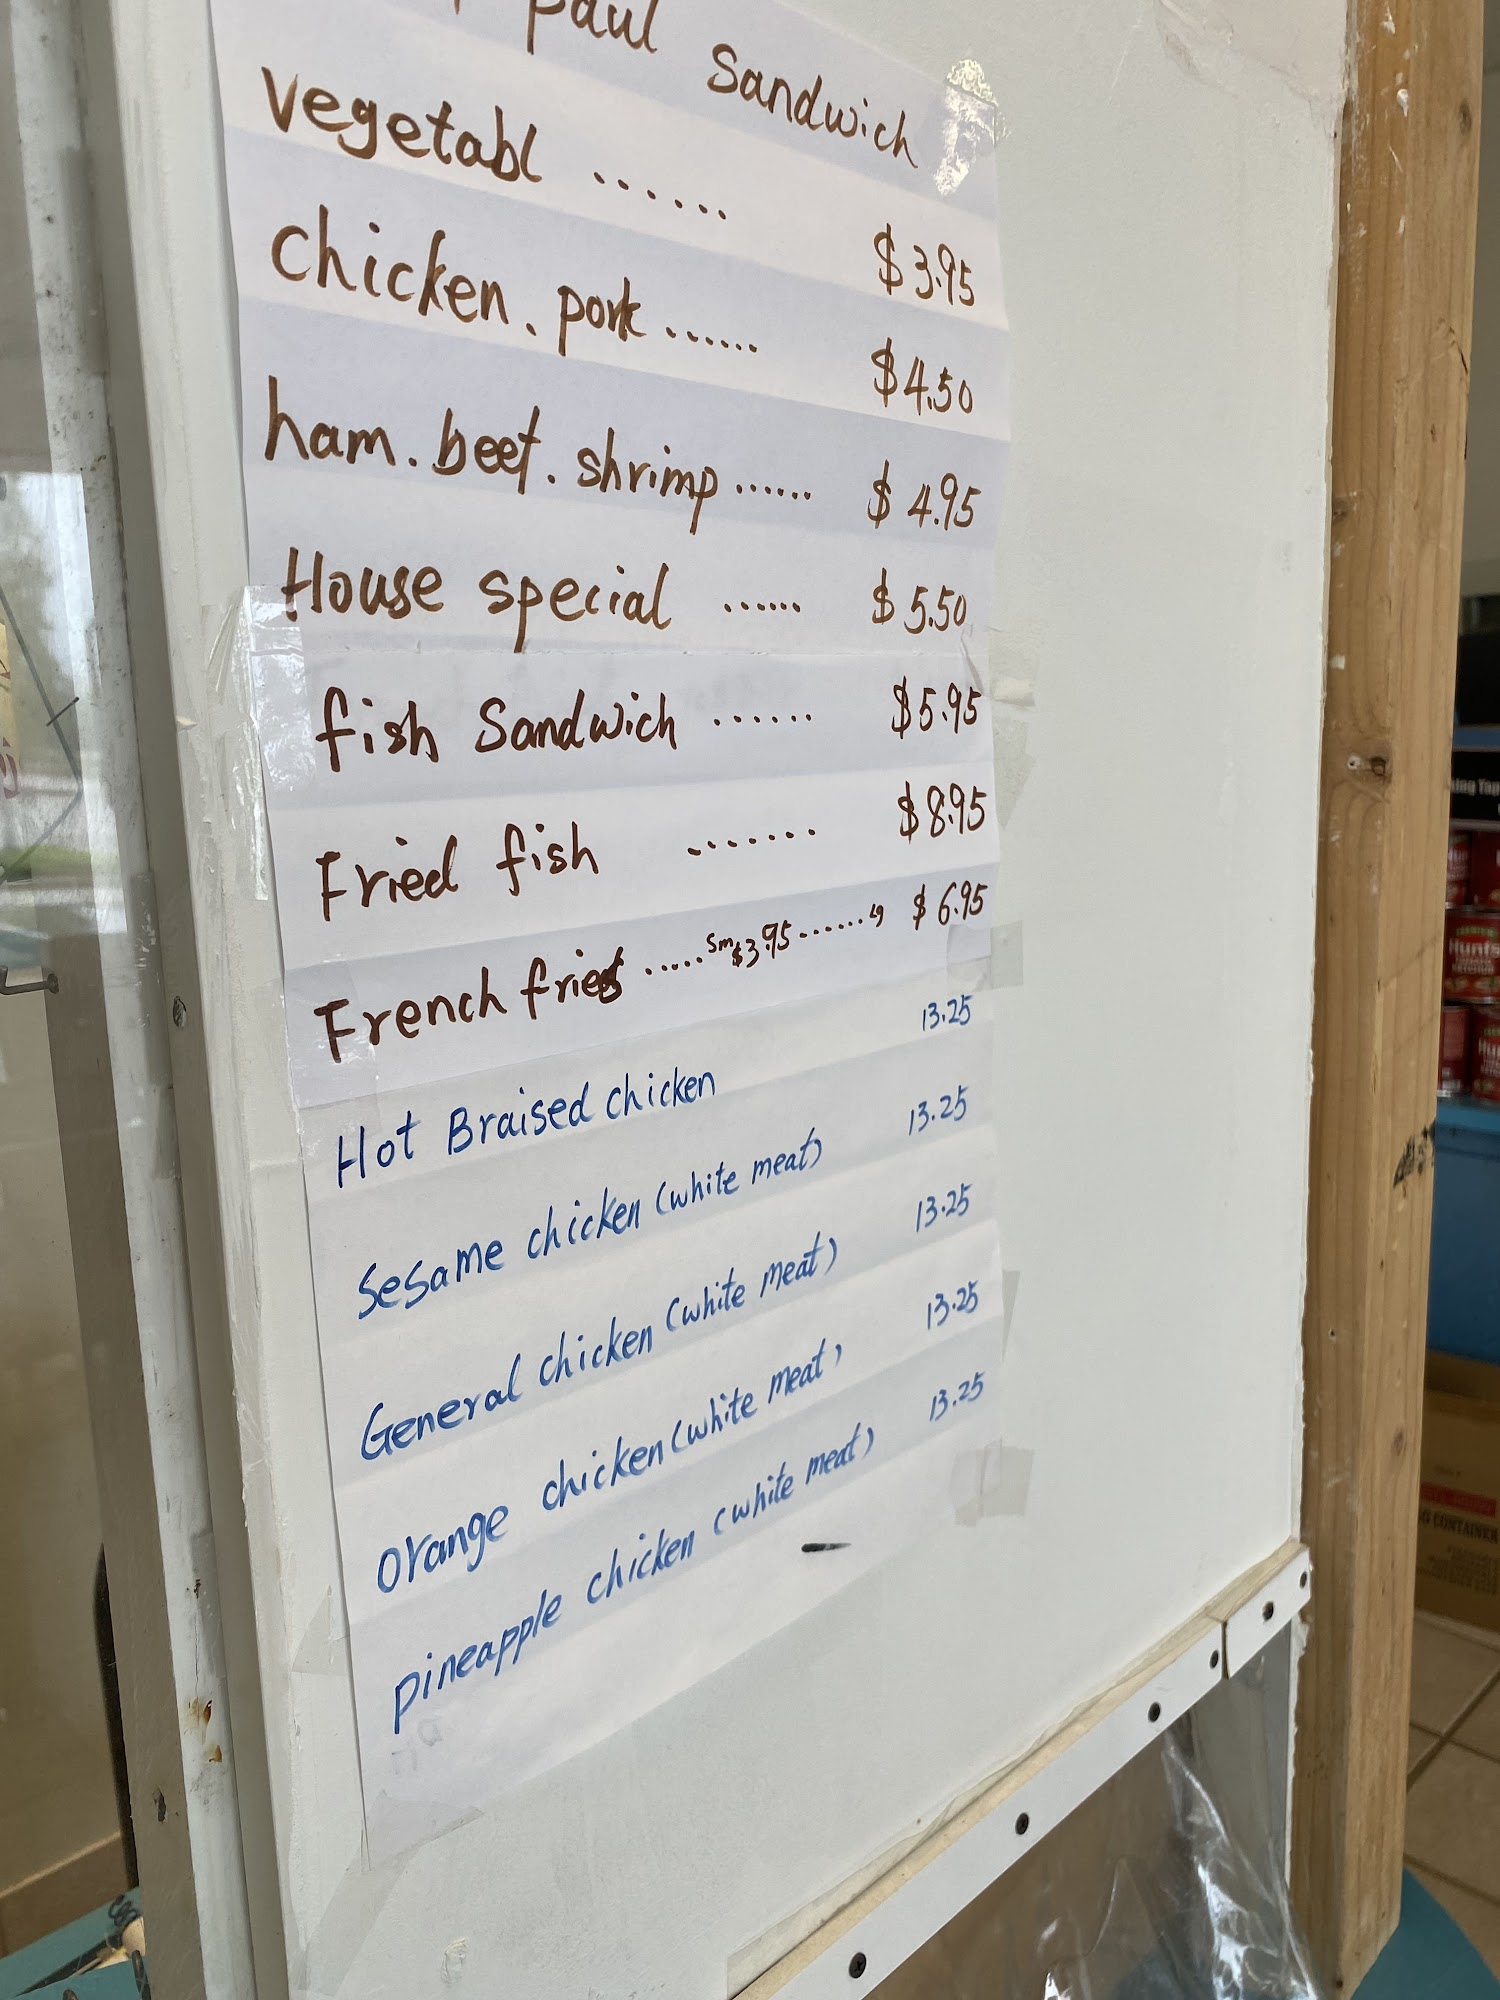 Paul Sandwich
vegetabl ...... $3.95
chicken. pork ...... $4.50
ham. beef. shrimp ...... $4.95
House special ...... $5.50
fish Sandwich ...... $5.95
Fried fish ....... $8.95
French fries ..... Sm $3.95 ...... Lg $6.95
Hot Braised chicken 13.25
Sesame chicken (white meat) 13.25
General chicken (white meat) 13.25
orange chicken (white meat) 13.25
pineapple chicken (white meat) 13.25
Hunts
CONTAINER